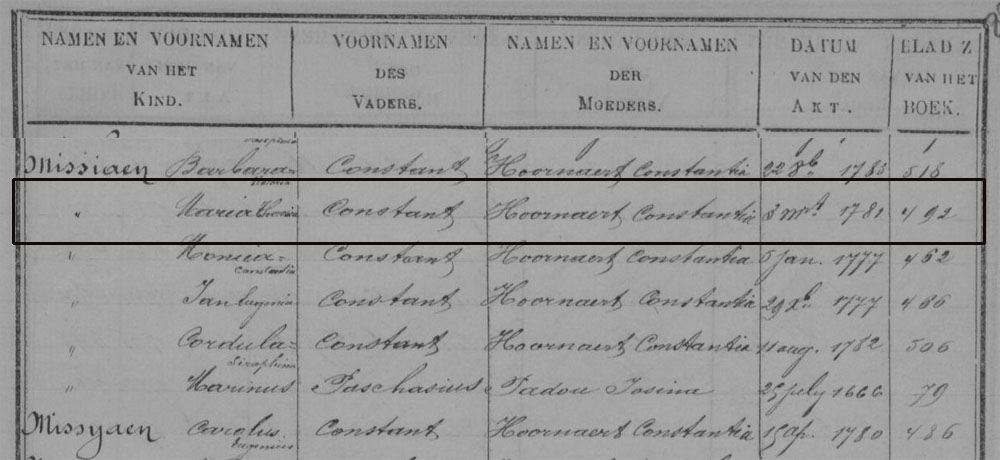 NAMEN EN VOORNAMEN VAN HET KIND. VOORNAMEN DES VADERS. NAMEN EN VOORNAMEN DER MOEDERS. DATUM VAN DEN AKT. BLADZ VAN HET BOEK.
Missiaen Barbara= Constant Hoornaert Constantia 22 8b. 1783 518
" Maria Constant Hoornaert Constantia 3 mrt 1781 492
" Monica= Constantia Constant Hoornaert Constantia 5 Jan. 1777 462
" Jan Eugenius Constant Hoornaert Constantia 29 1777 466
" Cordula= Seraphina Constant Hoornaert Constantia 11 aug. 1782 506
" Marinus Paschasius Padou Josina 25 july 1666 79
Missyaen Carolus Eugenius Constant Hoornaert Constantia 15 ap. 1780 486